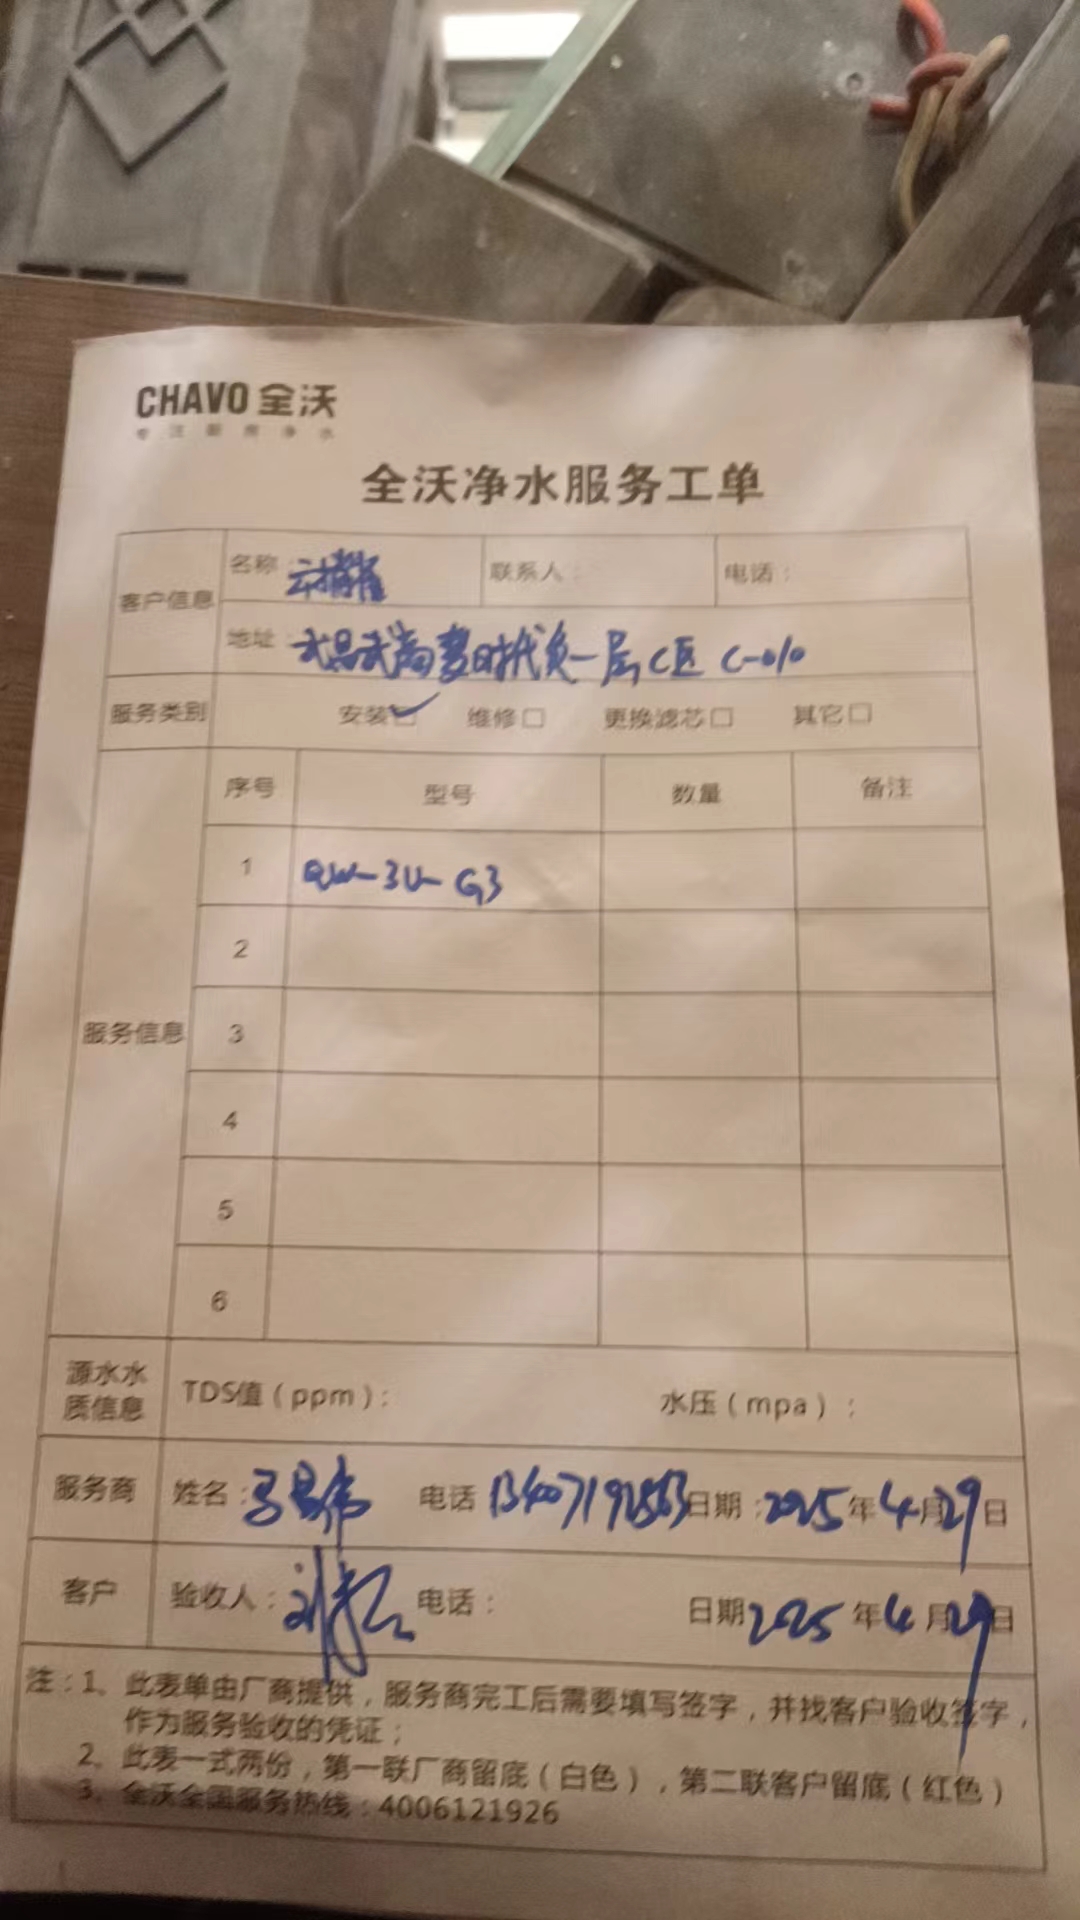 CHAVO 全沃
专注厨房净水
全沃净水服务工单
客户信息 名称: 联系人: 电话:
地址: 武昌武商梦时代负一层C区 C-010
服务类别 安装☑ 维修□ 更换滤芯□ 其它□
服务信息 序号 型号 数量 备注
1 QW-3U-G3
2
3
4
5
6
源水水质信息 TDS值(ppm): 水压(mpa):
服务商 姓名: 电话 日期:2025年4月29日
客户 验收人: 电话: 日期2025年4月29日
注:1、此表单由厂商提供,服务商完工后需要填写签字,并找客户验收签字,
作为服务验收的凭证;
2、此表一式两份,第一联厂商留底(白色),第二联客户留底(红色)
3、全沃全国服务热线:4006121926